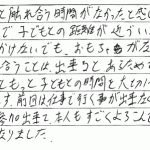 と触れ合う時間がなかったと感じ
で子どもとの距離が近づい
かけないでも、おもちゃがな
合うことは、出来ると
てもっと子どもとの時間を大切に
す。前回は仕事で行く事が出来な
参加出来て本人もすごくよろこ
なりました。